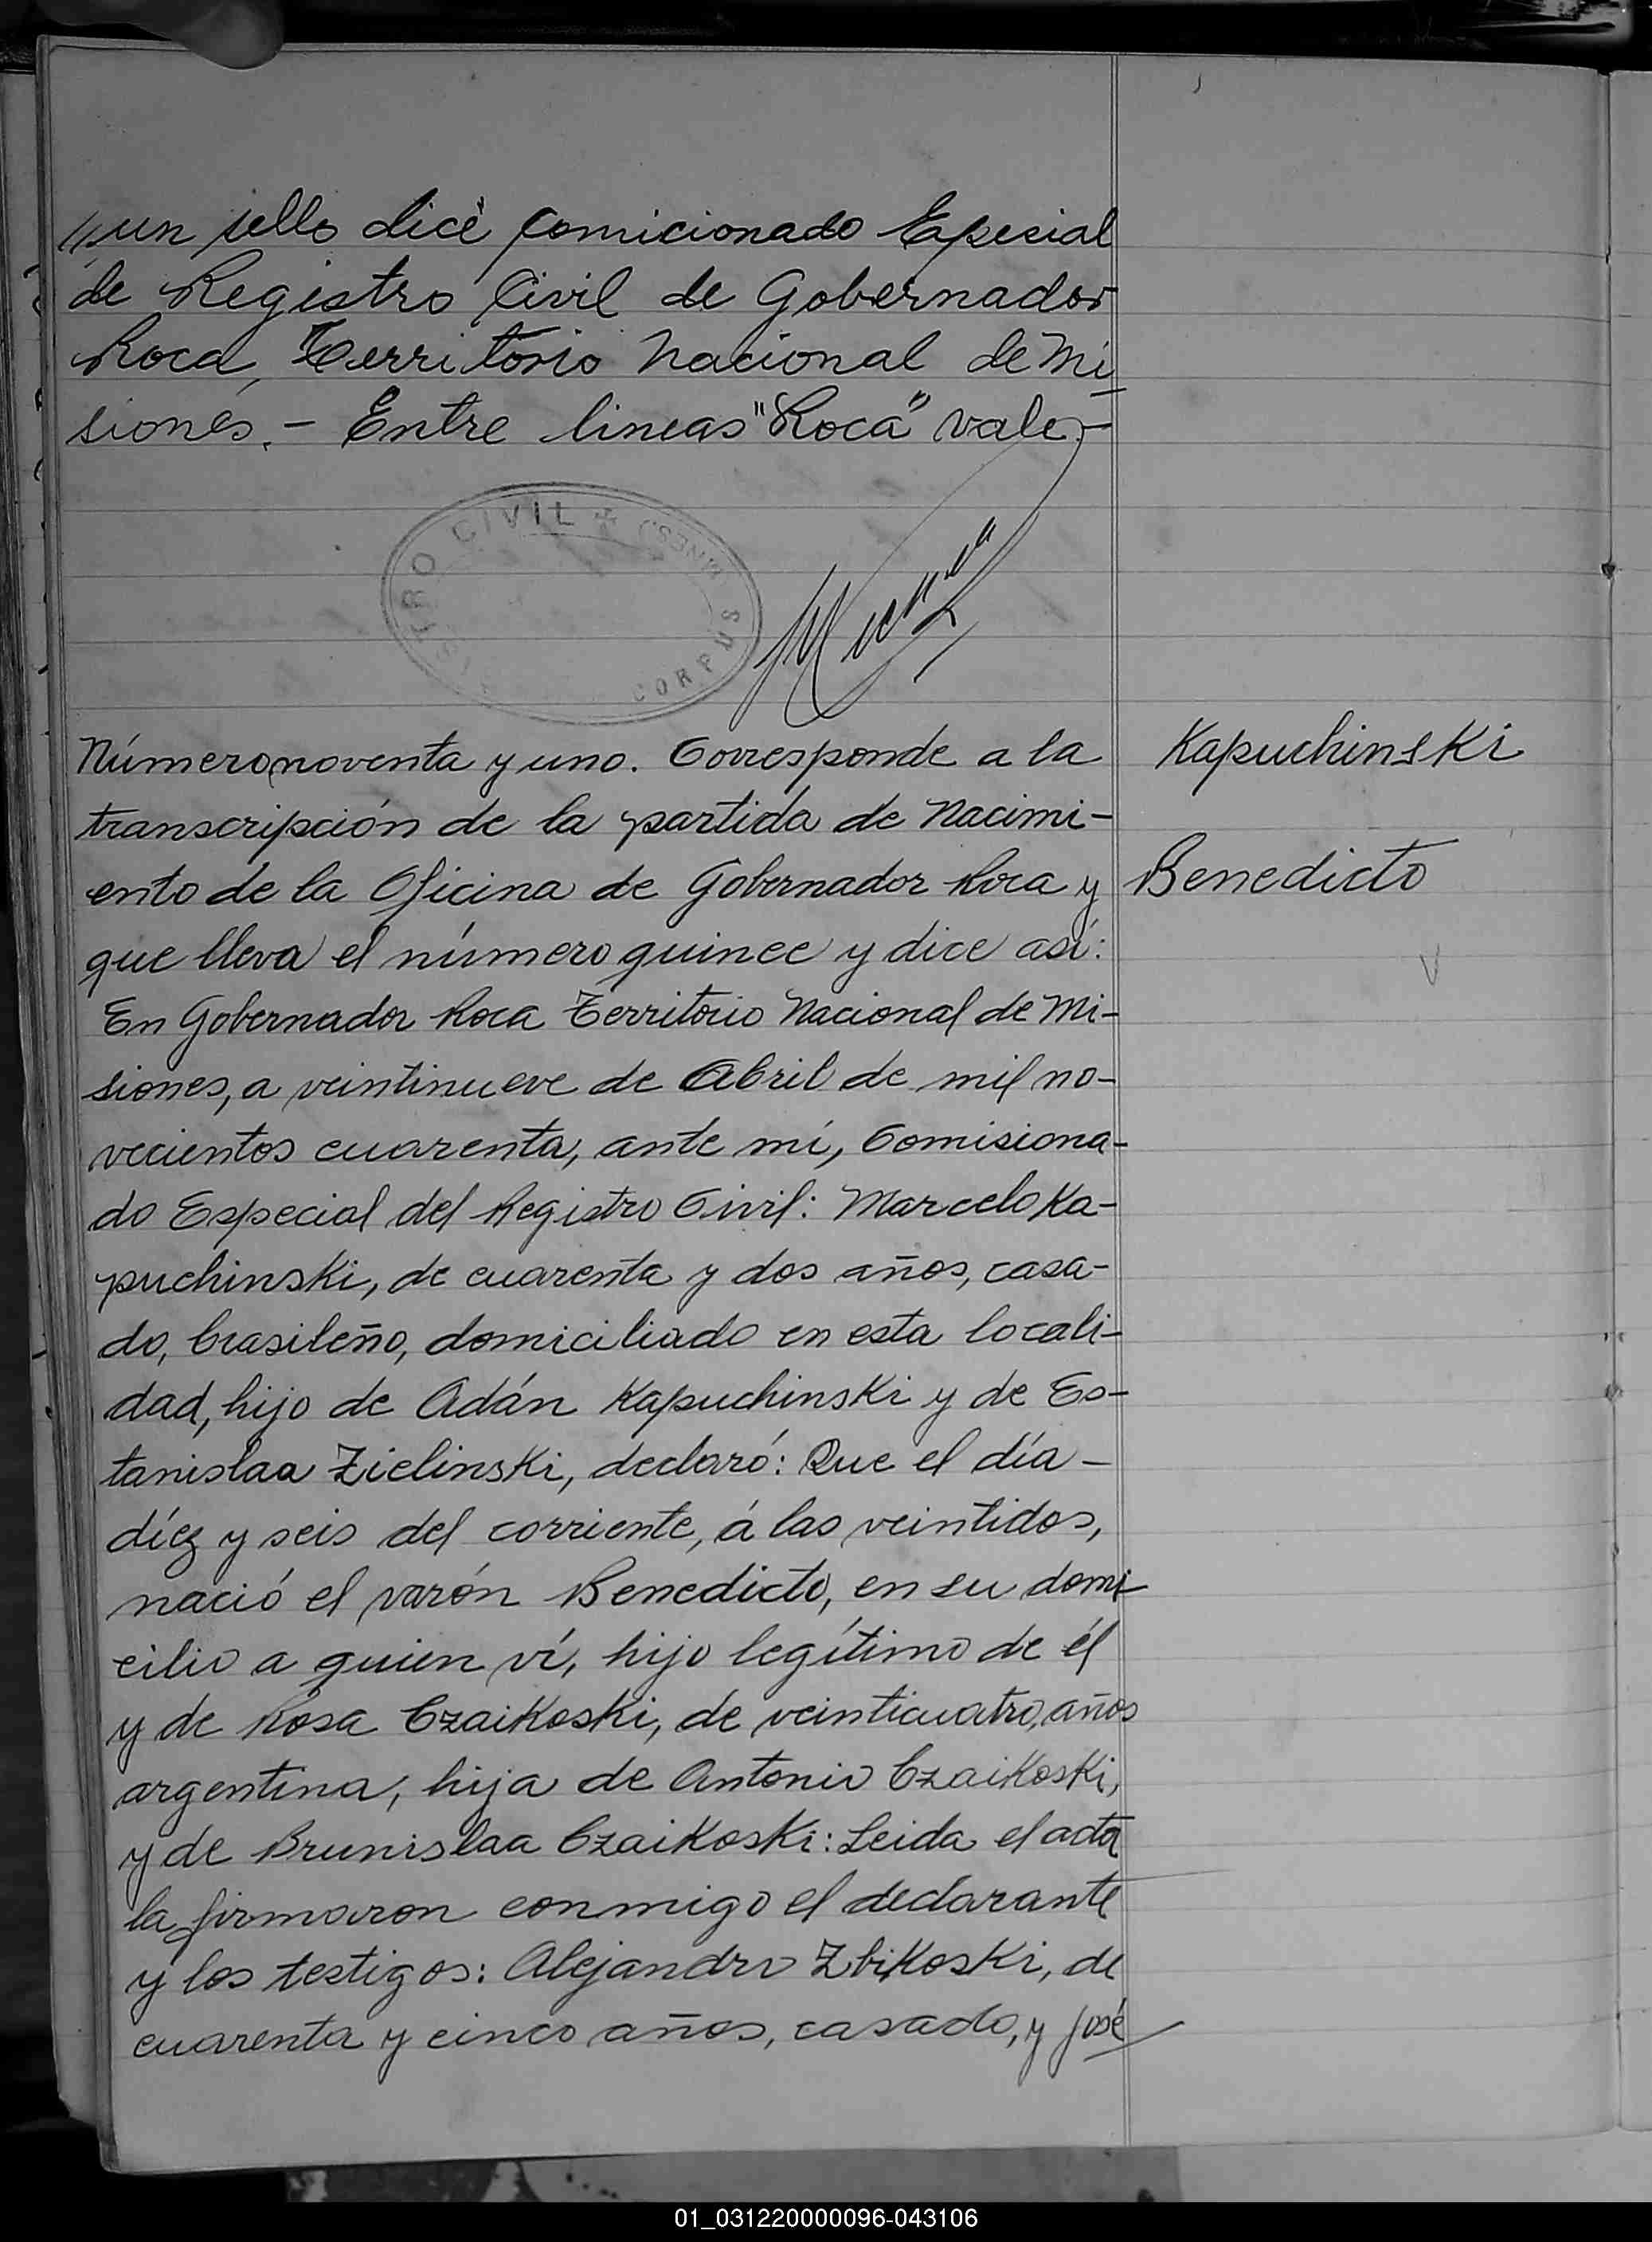 un sello dice Comicionado Especial
de Registro Civil de Gobernador
Roca, Territorio Nacional de Mi
siones.- Entre lineas "Roca" vale,-
REGISTRO CIVIL + CORPUS (MNES.)
Número noventa y uno. Corresponde a la
Kapuchinski
transcripción de la partida de Nacimi-
ento de la Oficina de Gobernador Roca y
Benedicto
que lleva el número quince y dice asi:
En Gobernador Roca Territorio Nacional de Mi-
siones, a veintinueve de Abril de mil no-
vecientos cuarenta, ante mí, Comisiona-
do Especial del Registro Civil: Marcelo Ka-
puchinski, de cuarenta y dos años, casa-
do, brasileño, domiciliado en esta locali-
dad, hijo de Adán Kapuchinski y de Es-
tanislaa Zielinski, declaró: Que el día -
díez y seis del corriente, á las veintidos,
nació el varón Benedicto, en su domi
cilio a quien ví, hijo legítimo de él
y de Rosa Czaikoski, de veinticuatro, años
argentina, hija de Antonio Czaikoski,
y de Brunislaa Czaikoski: Leida el acta
la firmaron conmigo el declarante
y los testigos: Alejandro Zbikoski, de
cuarenta y cinco años, casado, y José
01_031220000096-043106